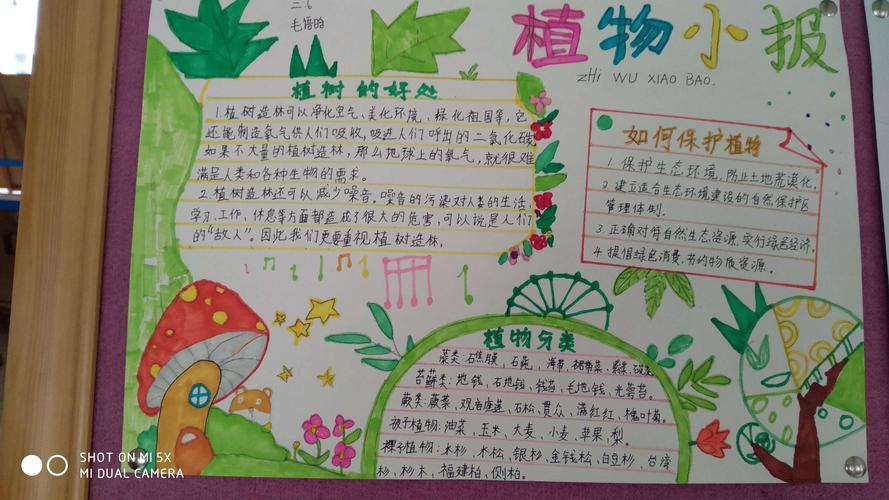 二.6
植物小报
zHi WU XIAO BAO.
植树的好处
1.植树造林可以净化空气、美化环境、绿化祖国等,它
还能制造氧气供人们吸收,吸进人们呼出的二氧化碳,
如果不大量的植树造林,那么地球上的氧气,就很难
满足人类和各种生物的需求。
2.植树造林还可以减少噪音。噪音的污染对人类的生活、
学习、工作、休息等方面都造成了很大的危害,可以说是人们
的“敌人”。因此我们更要重视植树造林。
如何保护植物
1.保护生态环境,防止土地荒漠化。
2.建立适合生态环境建设的自然保护区
管理体制。
3.正确对待自然生态资源,实行绿色经济。
4.提倡绿色消费,节约物质资源。
植物分类
菜类:石莼、海带、紫菜、
苔藓类:地钱、石地钱、钱苔、毛地钱、光萼苔。
蕨类:蕨菜、观音座莲、石松、贯众、满江红、槐叶萍。
被子植物:油菜、玉米、大麦、小麦、苹果、梨。
裸子植物:水杉、水松、银杉、金钱松、白豆杉、台湾
杉、杉木、福建柏、侧柏。
SHOT ON MI 5X
MI DUAL CAMERA